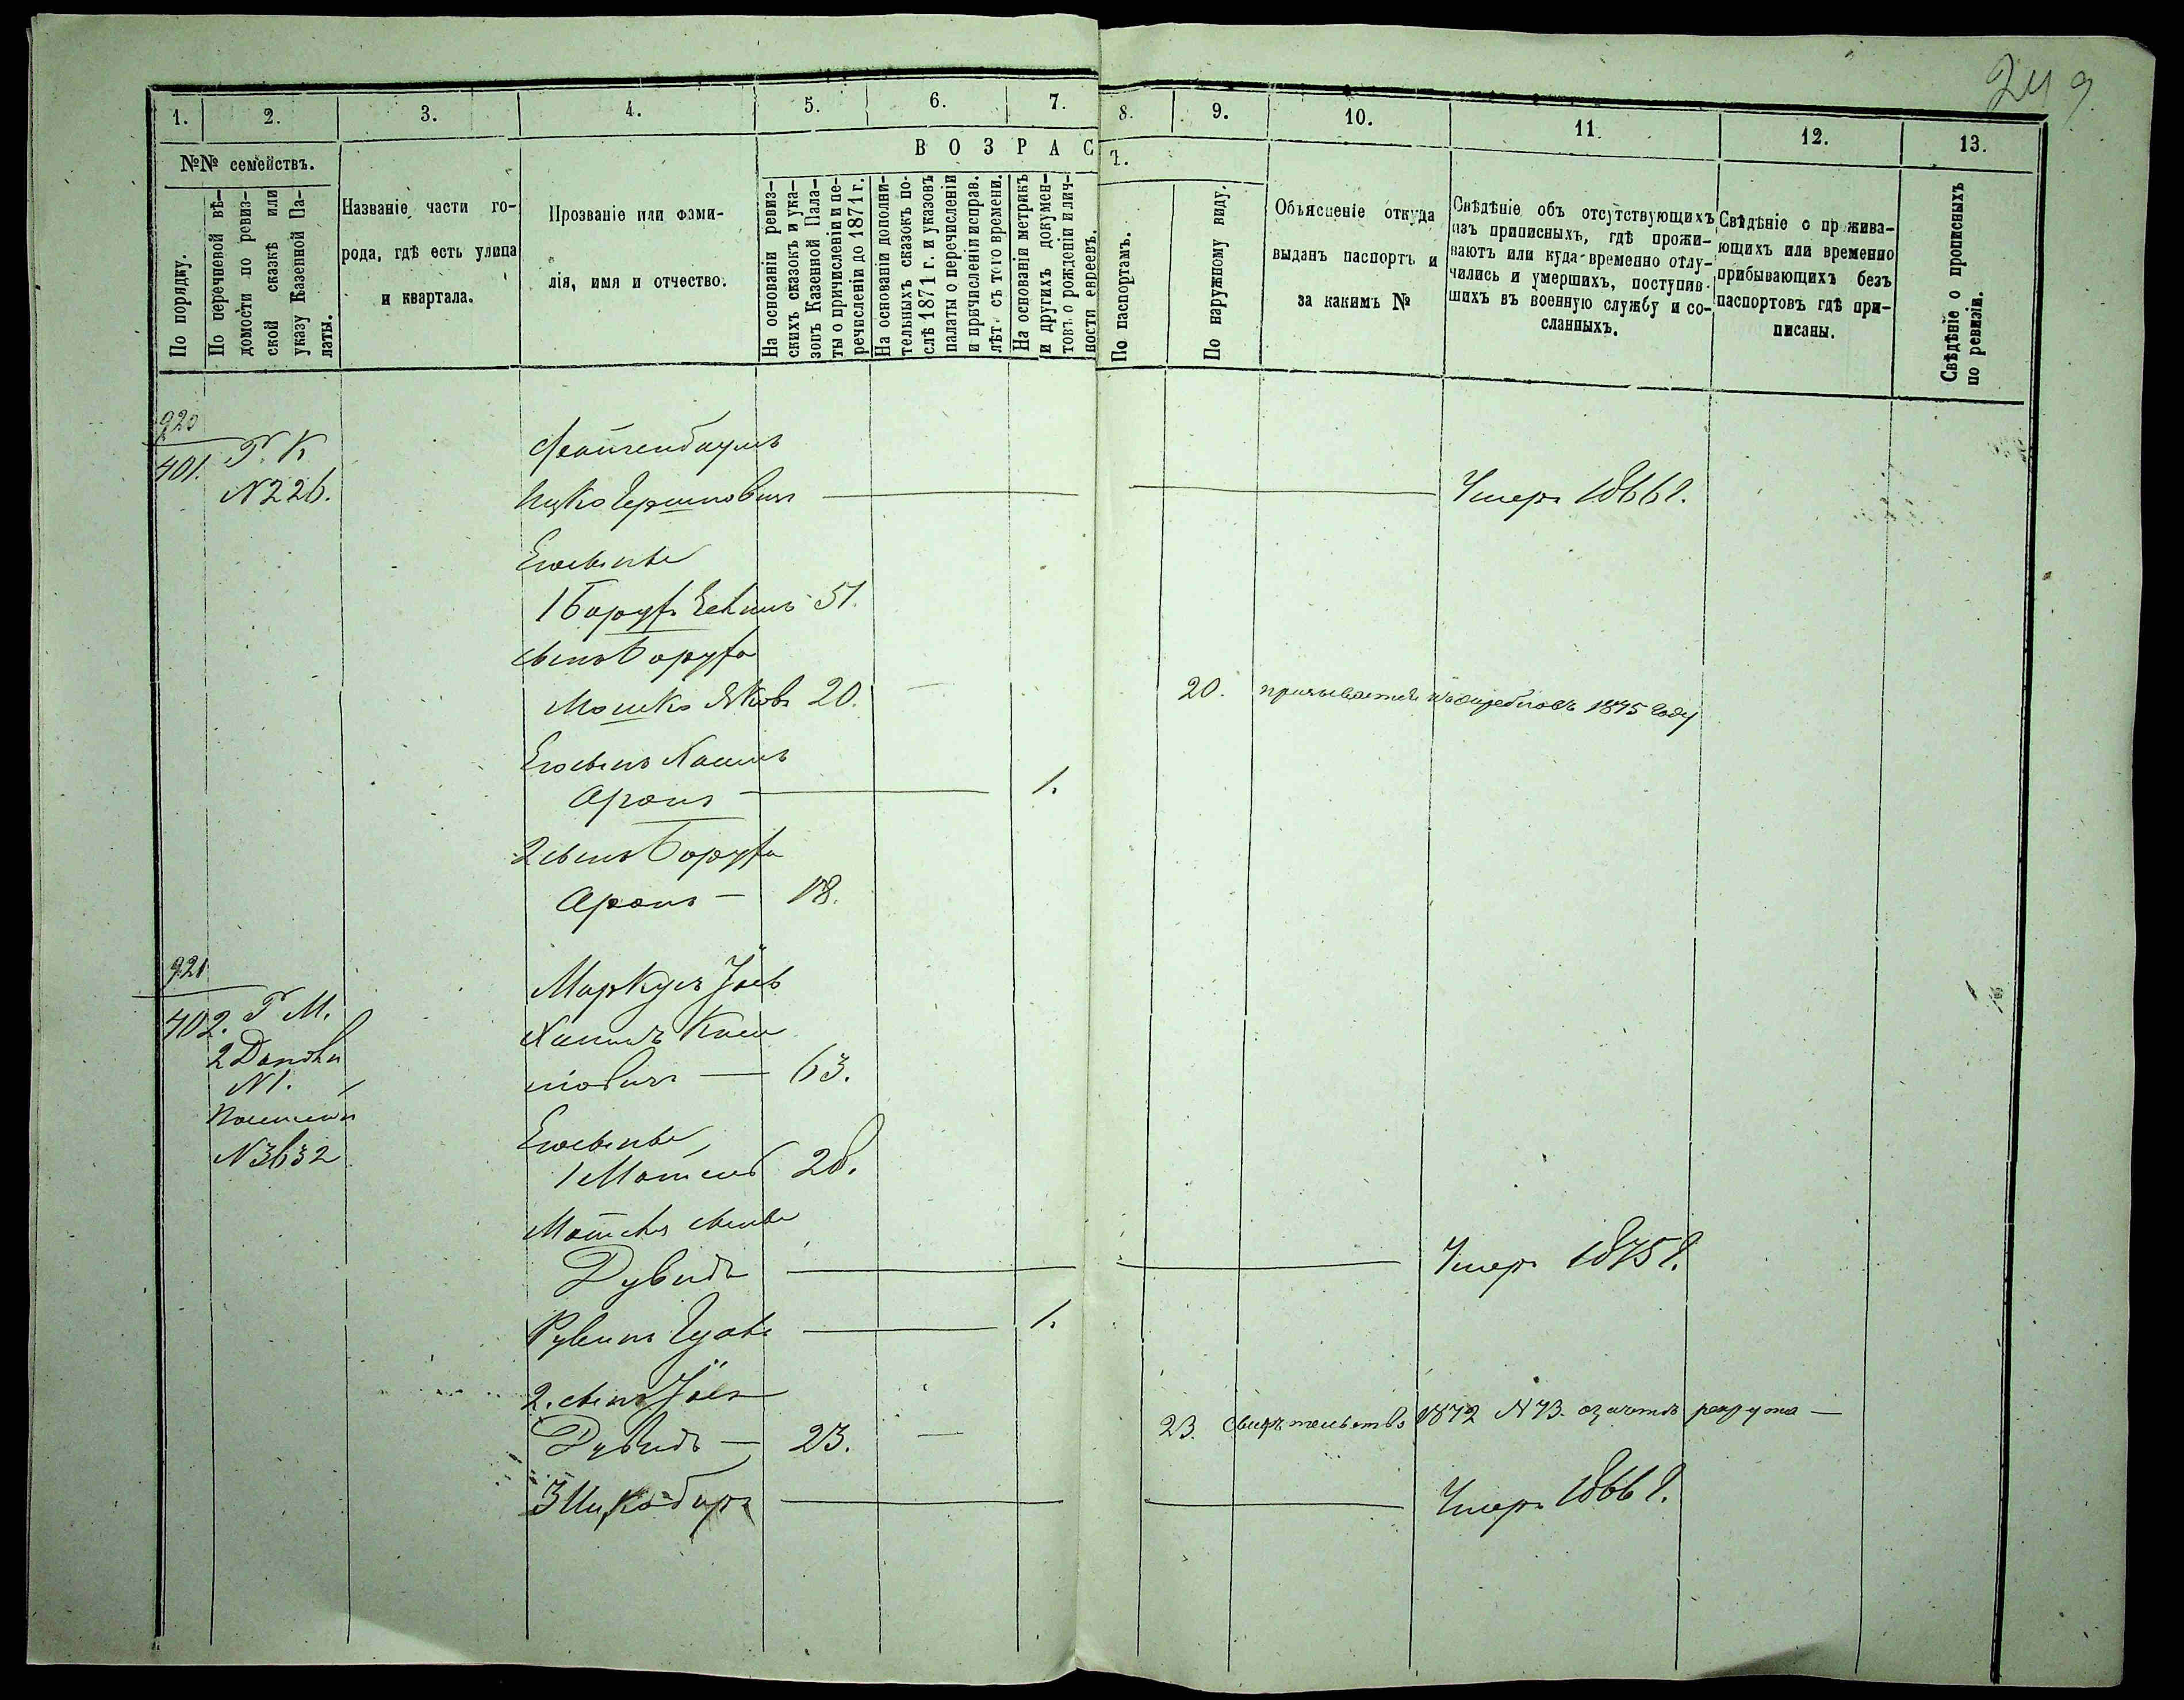 249
1. 2. 3. 4. 5. 6. 7. 8. 9. 10. 11. 12. 13.
№№ семействъ.
По порядку.
По перечневой вѣ-
домости по ревиз-
ской сказкѣ или
указу Казенной Па-
латы.
Названіе части го-
рода, гдѣ есть улица
и квартала.
Прозваніе или фами-
лія, имя и отчество.
ВОЗРАСТ.
На основаніи ревиз-
скихъ сказокъ и ука-
зовъ Казенной Пала-
ты о причисленіи и пе-
речисленіи до 1871 г.
На основаніи дополни-
тельныхъ сказокъ по-
слѣ 1871 г. и указовъ
палаты о перечисленіи
и причисленіи исправ.
лѣт. съ того времени.
На основаніи метрикъ
и другихъ докумен-
товъ о рожденіи и лич-
ности евреевъ.
По паспортамъ.
По наружному виду.
Объясненіе откуда
выданъ паспортъ и
за какимъ №
Свѣдѣніе объ отсутствующихъ
изъ приписныхъ, гдѣ прожи-
ваютъ или куда временно отлу-
чились и умершихъ, поступив-
шихъ въ военную службу и со-
сланныхъ.
Свѣдѣніе о прожива-
ющихъ или временно
прибывающихъ безъ
паспортовъ гдѣ при-
писаны.
Свѣдѣніе о прописныхъ
по ревизіи.
920
401. Г. К
N 226.
Фейгенбаумъ
Ицко Гершковичъ — Умеръ 1866 г.
Его сыновья
1 Борухъ 51.
сынъ Боруха
Мошко Яковъ 20. — 20. призывается 1895 году
Его сынъ
Аронъ — 1.
2 сынъ Боруха
Аронъ — 18.
921
402. Г М.
N 1.
N 3632
Маркусъ Іос
Хаимъ
— 63.
Его сыновья
1 28.
сыновья
Дувидъ — Умеръ 1875 г.
Рувинъ — 1.
2. сынъ
Дувидъ — 23. — 23. свидетельство 1872 N 73. рекрута —
3 — Умеръ 1866 г.